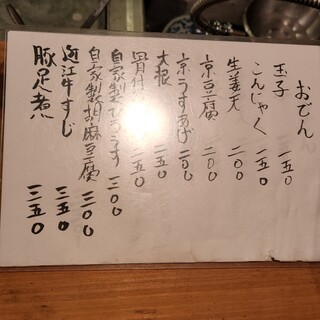 おでん
玉子 一五〇
こんにゃく 一五〇
生姜天 二〇〇
京豆腐 二〇〇
京うすあげ 二〇〇
大根 二五〇
骨付 二五〇
自家製ひろうす 三〇〇
自家製胡麻豆腐 三〇〇
近江牛すじ 三五〇
豚足煮 三五〇